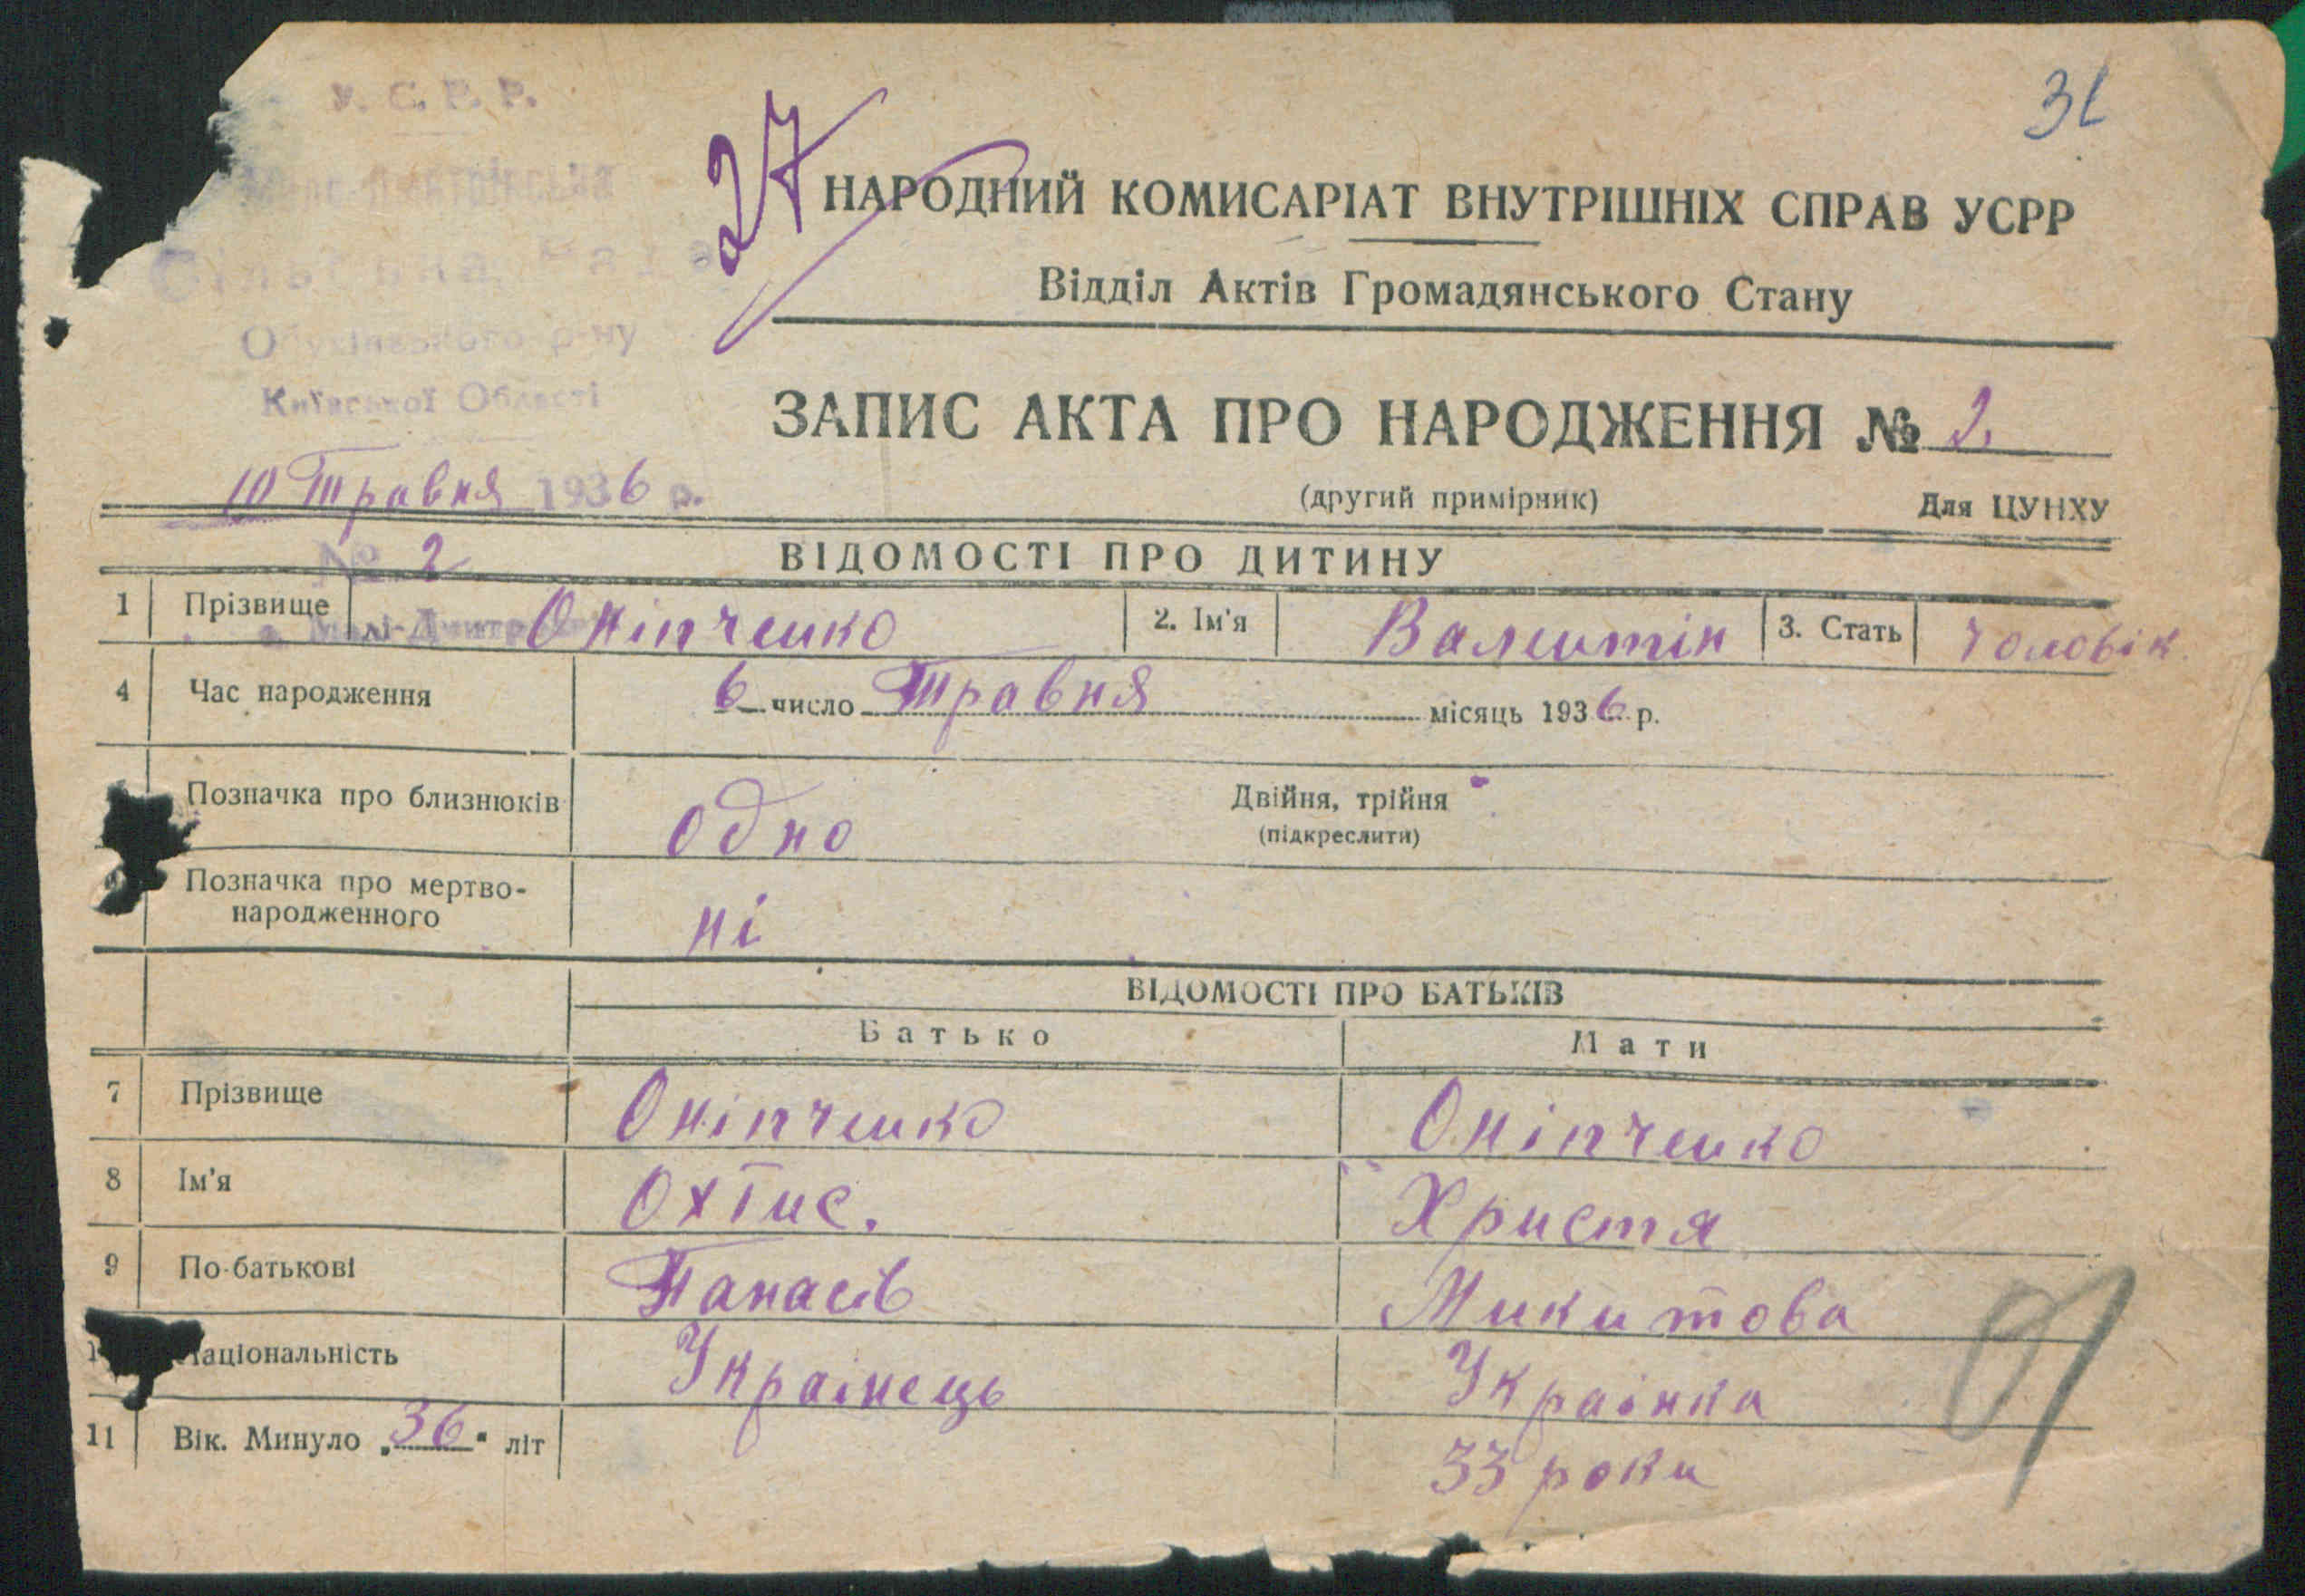 У. С. Р. Р.
31
27
НАРОДНИЙ КОМИСАРІАТ ВНУТРІШНІХ СПРАВ УСРР
Сільська Рада
Відділ Актів Громадянського Стану
Обухівського р-ну
Київської Області
ЗАПИС АКТА ПРО НАРОДЖЕННЯ № 2.
10 Травня 1936 р.
(другий примірник) Для ЦУНХУ
№ 2
ВІДОМОСТІ ПРО ДИТИНУ
1 Прізвище Оніпченко 2. Ім'я Валентін 3. Стать Чоловік.
4 Час народження 6 число Травня місяць 1936 р.
Позначка про близнюків одно Двійня, трійня
(підкреслити)
Позначка про мертво-
народженного ні
ВІДОМОСТІ ПРО БАТЬКІВ
Батько Мати
7 Прізвище Оніпченко Оніпченко
8 Ім'я Охтис. Христя
9 По-батькові Панасів Микитова
аціональність Українець Українка
11 Вік. Минуло „36" літ 33 роки